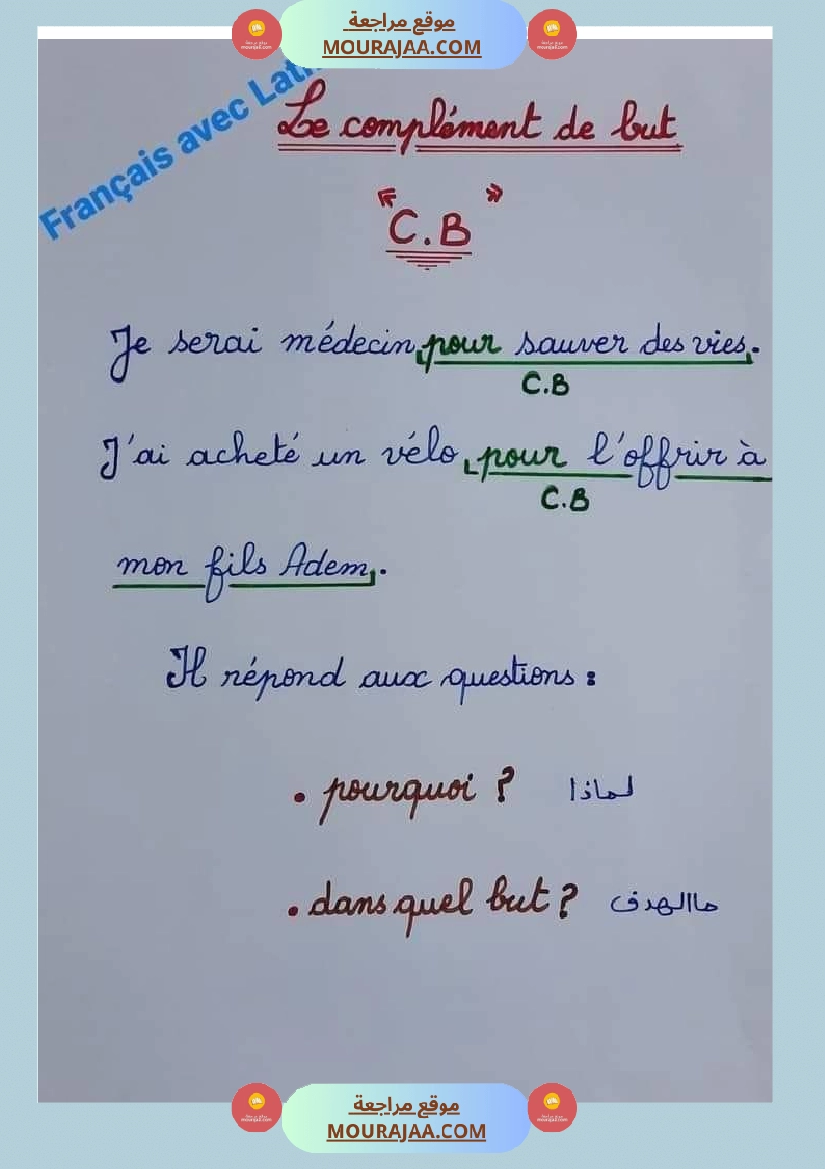 موقع مراجعة
MOURAJAA.COM
Français avec
Le complément de but
"C.B"
Je serai médecin pour sauver des vies.
C.B
J'ai acheté un vélo pour l'offrir à
C.B
mon fils Adem.
Il répond aux questions :
• pourquoi ? لماذا
• dans quel but ? ماالهدف
موقع مراجعة
MOURAJAA.COM